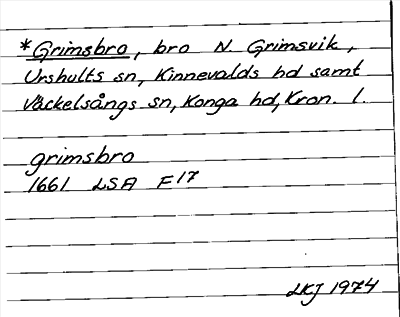 *Grimsbro, bro N. Grimsvik,
Urshults sn, Kinnevalds hd samt
Väckelsångs sn, Konga hd, Kron. l.
grimsbro
1661 LSA F17
LKJ 1974